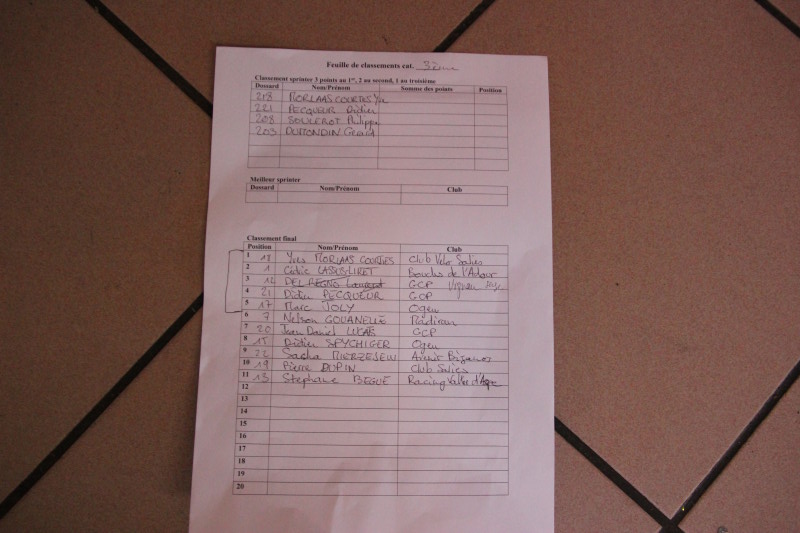 Feuille de classements cat. 3ème
Classement sprinter 3 points au 1er, 2 au second, 1 au troisième
Dossard Nom/Prénom Somme des points Position
218 MORLAAS COURTES Yve
221 PECQUEUR Didier
208 SOULEROT Philippe
203 DUMONDIN Gerard
Meilleur sprinter
Dossard Nom/Prénom Club
Classement final
Position Nom/Prénom Club
1 18 Yves MORLAAS COURTES Club Velo Salies
2 1 Cédric LASUS LIRET Boucles de l'Adour
3 12 DEL REGNO Laurent GCP
4 21 Didier PECQUEUR GCP
5 17 Marc JOLY Ogeu
6 7 Nelson GOUANELLE Madiran
7 20 Jean Daniel LUCAS GCP
8 15 Didier SPYCHIGER Ogeu
9 22 Sacha MIERZEJEW Avenir Biganos
10 19 Pierre DUPIN Club Salies
11 13 Stephane BEGUE Racing Vallée d'Aspe
12
13
14
15
16
17
18
19
20